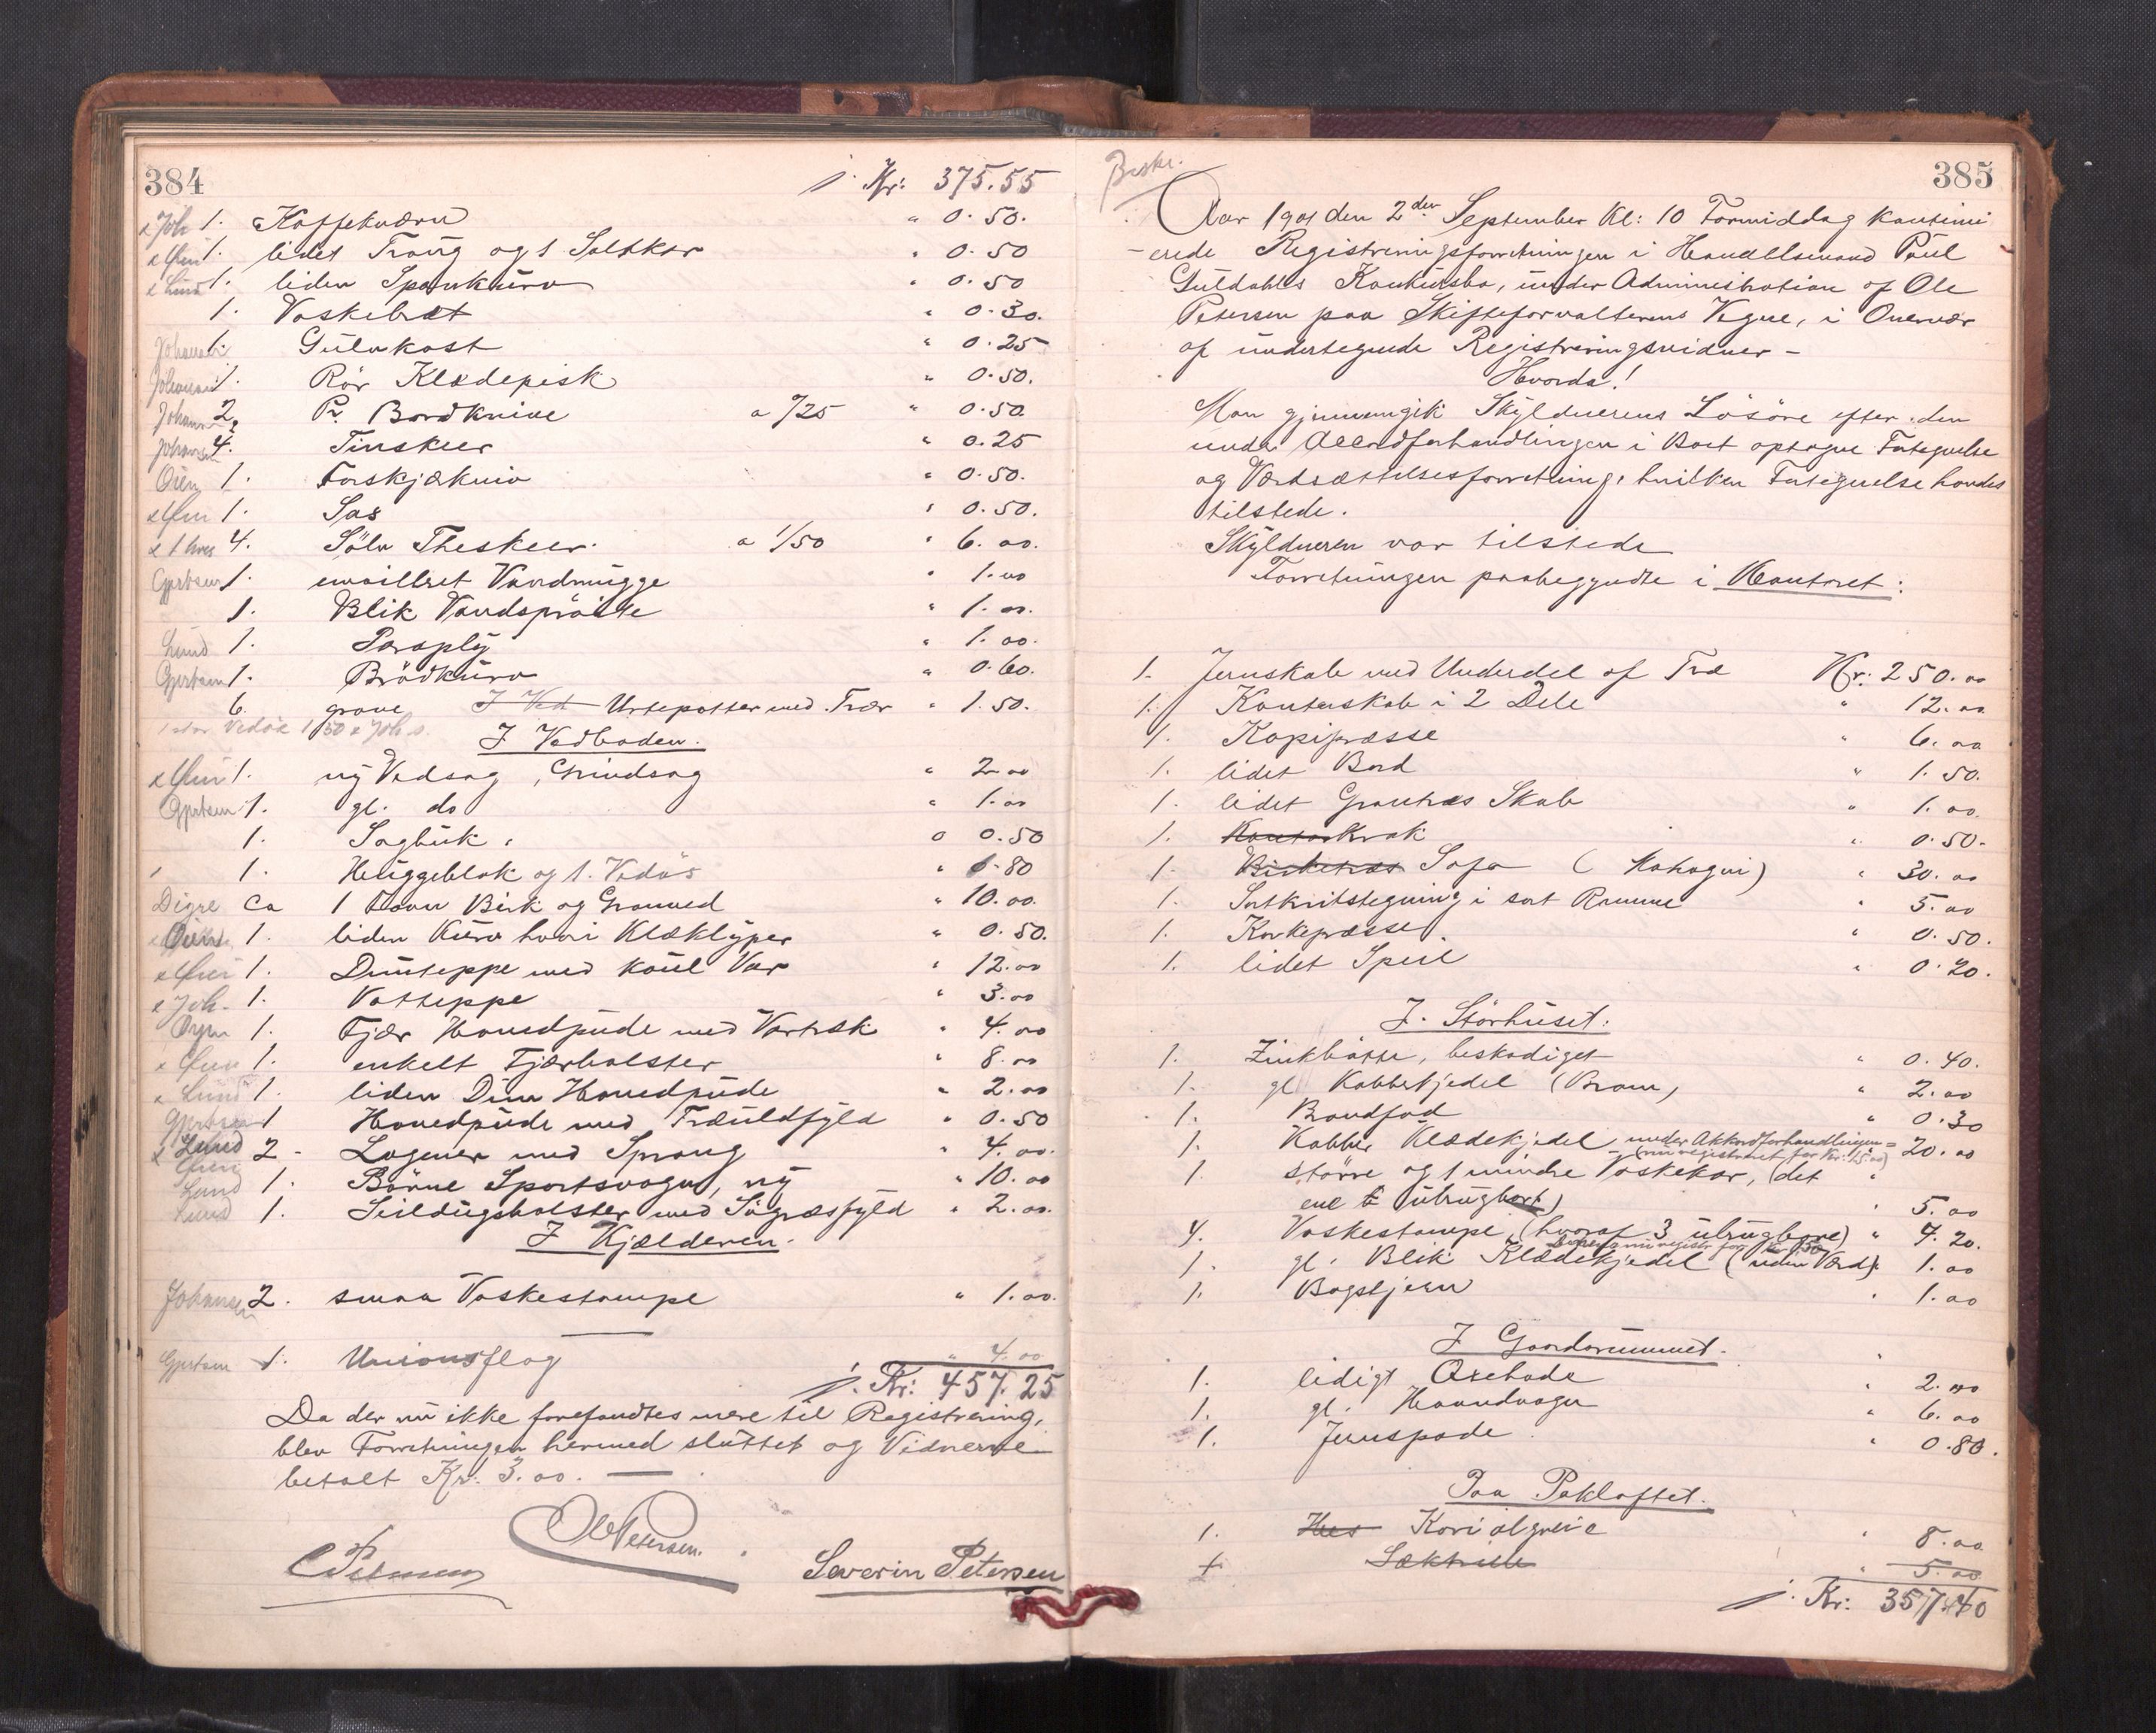 384
j. Kr: 375.55
x Joh 1. Kaffekværn " 0.50.
x 1. lidet Traug og 1 Saltkar " 0.50
x Lund 1. liden Spankurv " 0.50
1. Vaskebræt " 0.30.
Johansen 1. Gulvkost " 0.25
Johansen 1. Rör Klædepisk " 0.50.
Johansen 2 Pr. Bordknive a 0/25 " 0.50.
Johansen 4. Tinskeer " 0.25
Öien 1. Forskjærkniv " 0.50.
x 1. Sax " 0.50.
x 1 hver 4. Sölv Theskeer. a 1/50 " 6.00.
Gjertsen 1. emailleret Vandmugge " 1.00
1. Blik Vandspröite " 1.00.
Lund 1. Paraply " 1.00.
Gjertsen 1. Brödkurv " 0.60.
6. grove I Ved Urtepotter med Trær " 1.50.
1 stor Vedöx 1/50 x Joh s.
I Vedboden.
x 1. ny Vedsag, Grindsag " 2.00
Gjertsen 1. gl. do " 1.00
1. Sagbuk. " 0.50
1. Huggeblok og 1. Vedöx " 1.80
Digre ca 1 Favn Birk og Granved " 10.00.
Öien 1. liden Kurv hvori Klæklyper " 0.50.
x 1. Dunteppe med Var " 12.00
x Joh. 1. Vatteppe " 3.00
Öyen 1. Fjær Hovedpude med Vartræk " 4.00
x 1. enkelt Fjærbolster " 8.00
x Lund 1. liden Dun Hovedpude " 2.00
Gjertsen 1 Hovedpude med Træuldfyld " 0.50
x Lund 2 - Lagener med Sprang " 4.00.
Lund 1. Börne Sportsvogn, ny " 10.00
Lund 1. Seildugsbolster med Sögræsfyld " 2.00.
I Kjælderen.
Johansen 2. smaa Vaskestampe " 1.00.
Gjertsen 1. Unionsflag " 4.00
j. Kr: 457.25
Da der nu ikke forefandtes mere til Registrering,
blev Forretningen hermed sluttet og Vidnerne
betalt Kr. 3.00.
Ole Petersen.
C Petersen
Severin Petersen
385
Beskr.
Aar 1901 den 2den September Kl: 10 Formiddag kontinu
-erede Registreringsforretningen i Handelsmand Paul
Guldahls Konkursbo, under Administration af Ole
Petersen paa Skifteforvalterens Vegne, i Overvær
af undertegnede Registreringsvidner -
Hvorda!
Man gjennemgik Skyldnerens Lösöre efter den
under Accordforhandlingen i Boet optagne Fortegnelse
og Værdsættelsesforretning, hvilken Fortegnelse havdes
tilstede.
Skyldneren var tilstede
Forretningen paabegyndte i Kontoret:
1. Jernskab med Underdel af Træ Kr: 250.00
1. Kontorskab i 2 Dele " 12.00
1. Kopipræsse " 6.00
1. lidet Bord " 1.50.
1. lidet Grantræs Skab " 1.00.
1. Kontorkrak " 0.50.
1. Birketræs Sofa (Mahogni) " 30.00
1. Sortkritstegning i sort Ramme " 5.00
1. Korkepresse. " 0.50.
1. lidet Speil " 0.20.
I. Störhuset.
1. Zinkbötte, beskadiget " 0.40.
1. gl Kobberkjedel (Bram) " 2.00
1. Brandfad " 0.30
1. Kobber Klædekjedel under Akkordforhandlingen = 20.00
(nu registreret for Kr: 15.00)
1. större og 1 mindre Vaskekar, (det "
ene ubrugbart) " 5.00
4. Vaskestampe (hvoraf 3 ubrugbare) " 4.20.
1. gl. Blik Klædekjedel (uden Værd). 1.00
1. Bagstjern " 1.00
I Gaardsrummet.
1. ledigt Oxehode " 2.00
1. gl. Haandvogn " 6.00
1. Jernspade " 0.80.
Paa Pakloftet.
1. Hes Kariolgreie " 8.00
1 Sæktrille " 5.00
j. Kr: 357.40